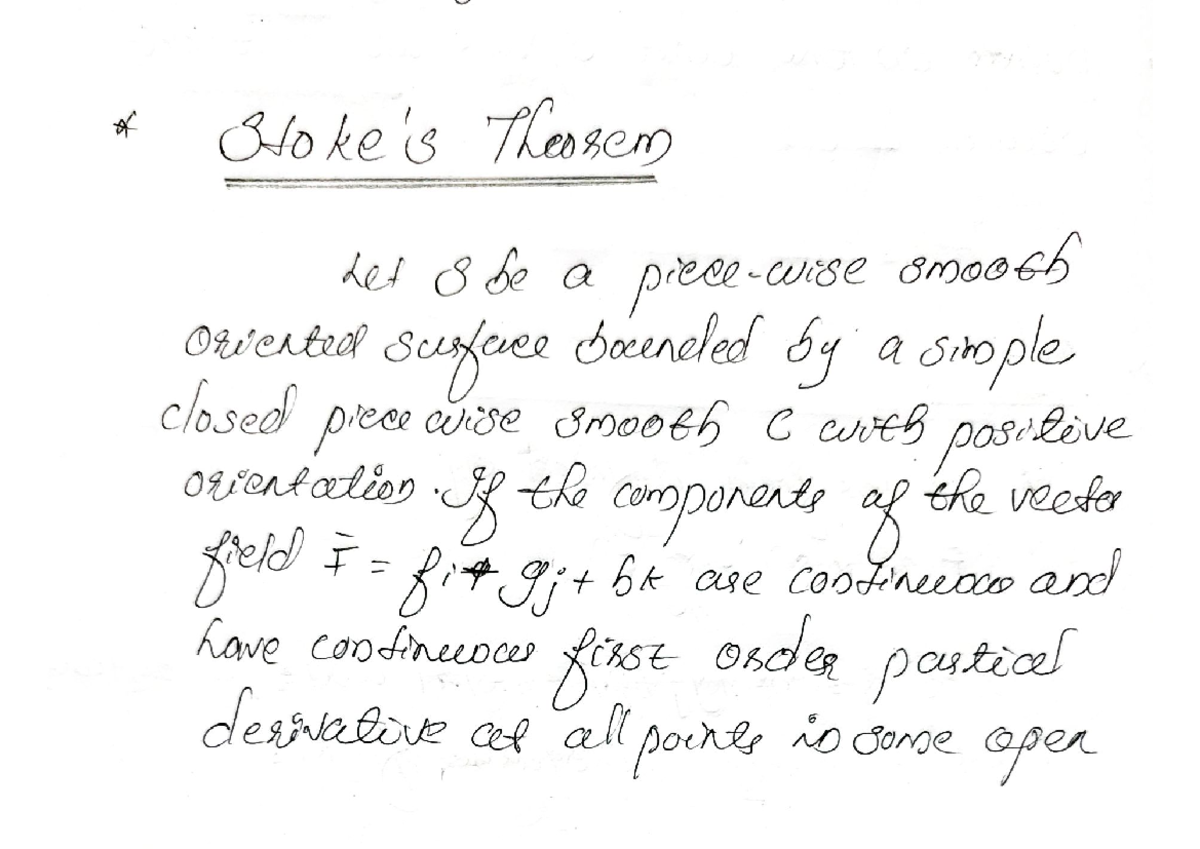 * Stoke's Theorem
Let S be a piece-wise smooth
oriented surface bounded by a simple
closed piece wise smooth C with positive
orientation. If the components of the vector
field F̄ = fi + gj + hk are continuous and
have continuous first order partial
derivative at all points in some open